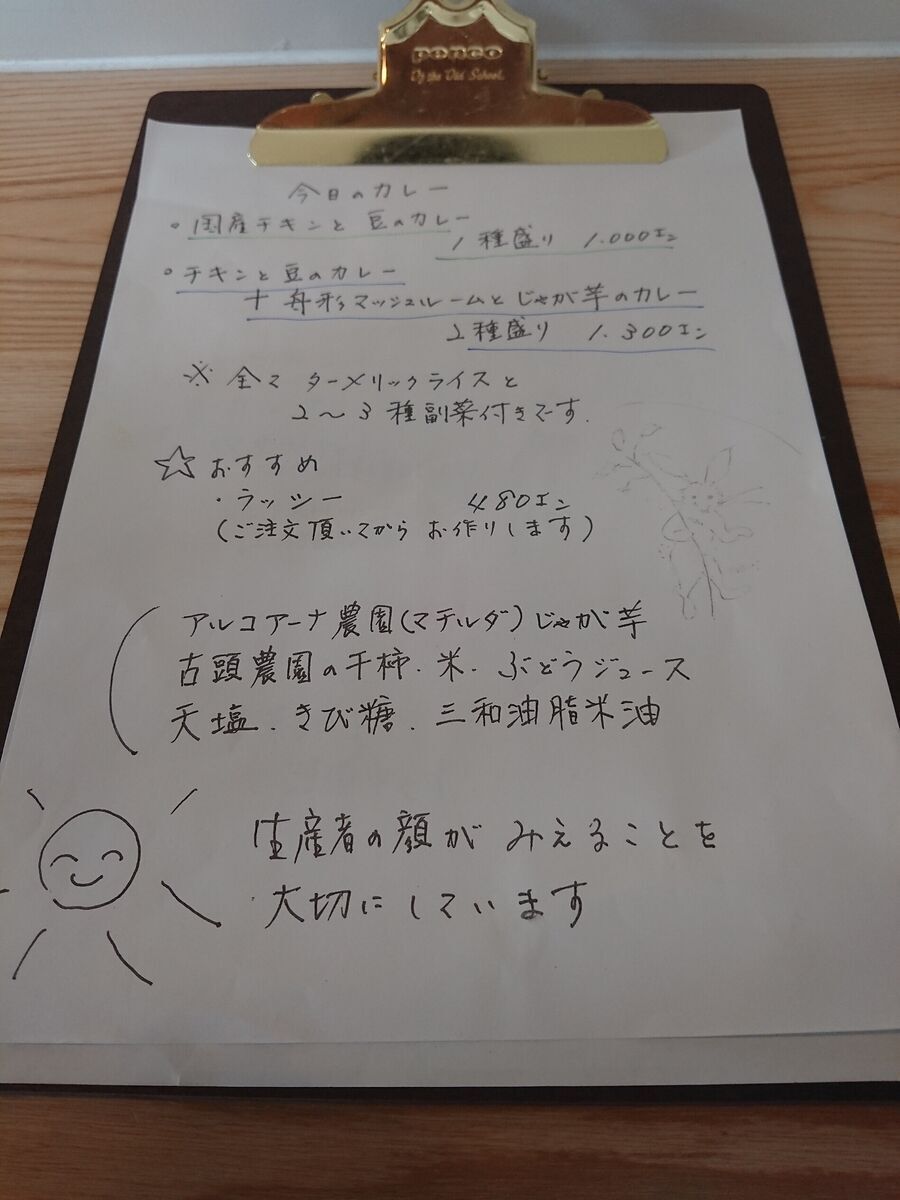 penco
Of the Old School.
今日のカレー
。国産チキンと豆のカレー
1種盛り 1.000エン
。チキンと豆のカレー
+舟形マッシュルームとじゃが芋のカレー
2種盛り 1.300エン
※ 全て ターメリックライスと
2～3種副菜付きです.
☆おすすめ
・ラッシー 480エン
(ご注文頂いてから お作りします)
アルコアーナ農園(マチルダ)じゃが芋
古頭農園の干柿.米.ぶどうジュース
天塩.きび糖.三和油脂米油
生産者の顔が みえることを
大切にしています